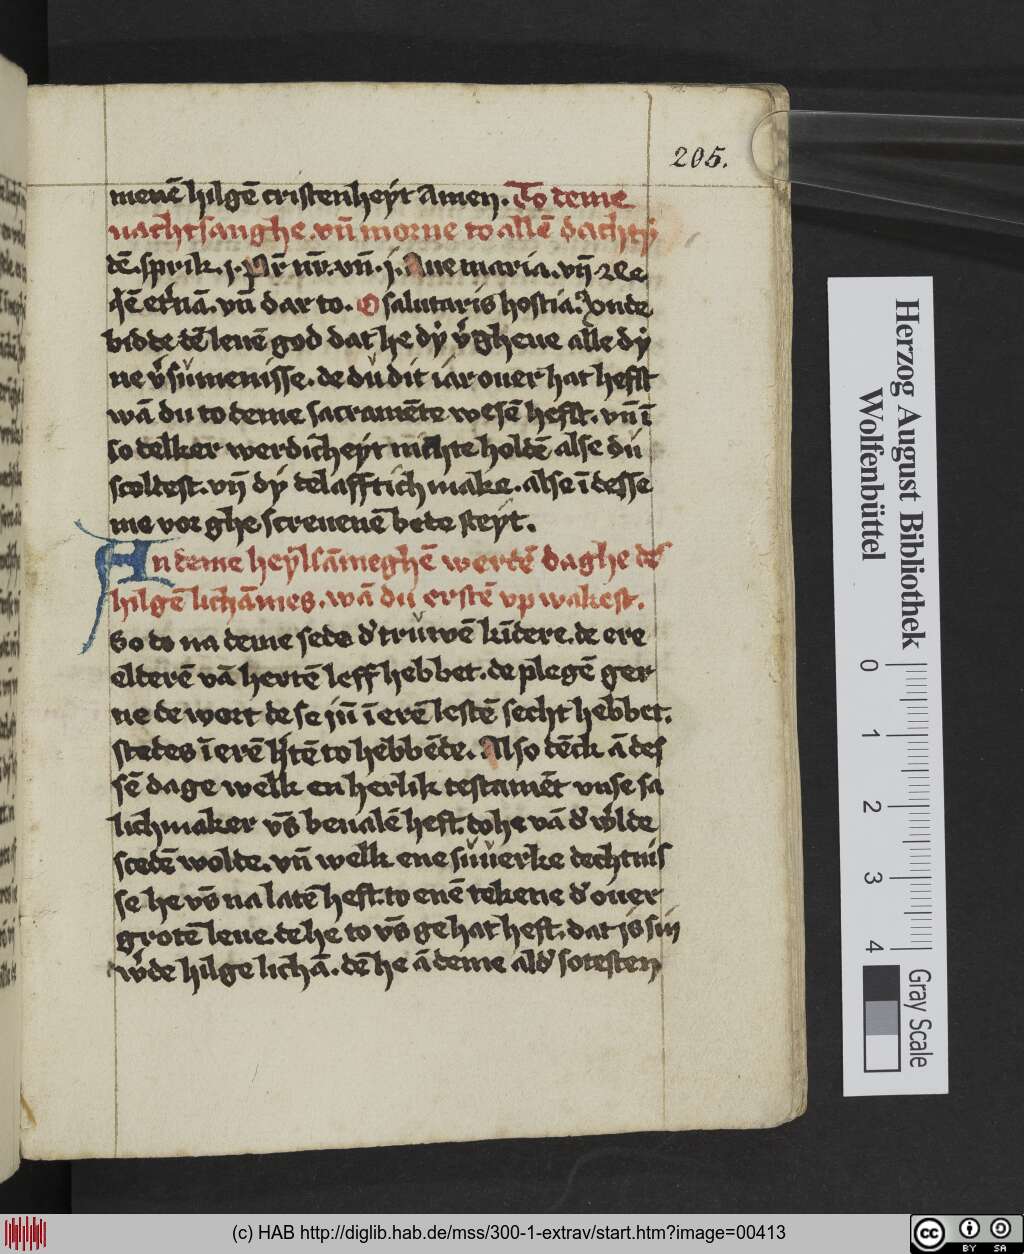 205.
menē hilgē cristenheyt Amen. To deme
nachtsanghe. vn̄ morne to allē dachty
dē. sprik. j. Pr̄ nr̄. vn̄. j. Aue maria. vn̄ Re
etnā. vn̄ dar to. O salutaris hostia. Vnde
bidde dē leuē god dat he dy vgheue alle dy
ne vsumenisse. de du dit iar ouer hat hefst
wā du to deme sacramēte wesē hefst. vn̄ ī
so delker werdicheyt nichte holdē alse du
scoldest. vn̄ dy delafftich make. alse ī desse
me vor ghe screuenē bede steyt.
An deme heylsāmeghē wertē daghe des
hilgē lichāmes. wā du erstē vp wakest.
So do na deme sede d' truwē kīdere. de ere
elderē vā hertē leff hebbet. de plegē ger
ne de wort de se jū ī erē lestē secht hebbet.
stedes ī erē htē to hebbēde. Also dēck ā des
sē dage welk en herlik testamēt vnse sa
lichmaker vs̄ beualē heft. do he vā d' w'lde
scedē wolde. vn̄ welk ene suuerke dechtnis
se he vs̄ na latē heft. to enē tekene d' ouer
grotē leue. de he to vs̄ gehat heft. dat is sin
w'de hilge lichā. dē he ā deme ald' sotesten
Herzog August Bibliothek
Wolfenbüttel
0 1 2 3 4
Gray Scale
(c) HAB http://diglib.hab.de/mss/300-1-extrav/start.htm?image=00413
cc BY SA